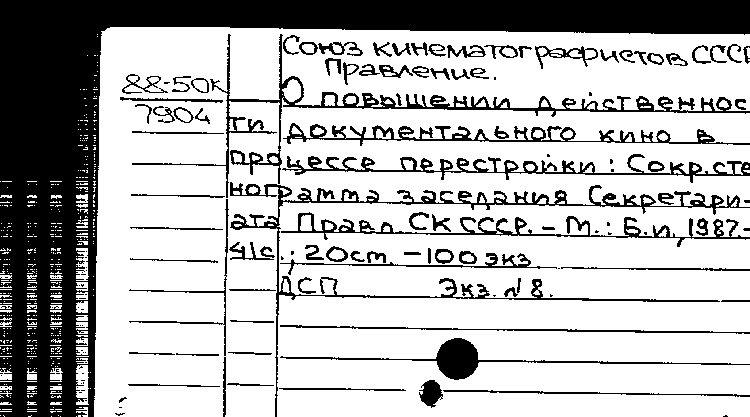 Союз кинематографистов СССР
Правление.
88-50к
7904
О повышении действеннос
ти документального кино в
процессе перестройки: Сокр. сте
нограмма заседания Секретари-
ата Правл. СК СССР. – М.: Б.и., 1987.-
41с.; 20см. – 100 экз.
ДСП Экз. № 8.